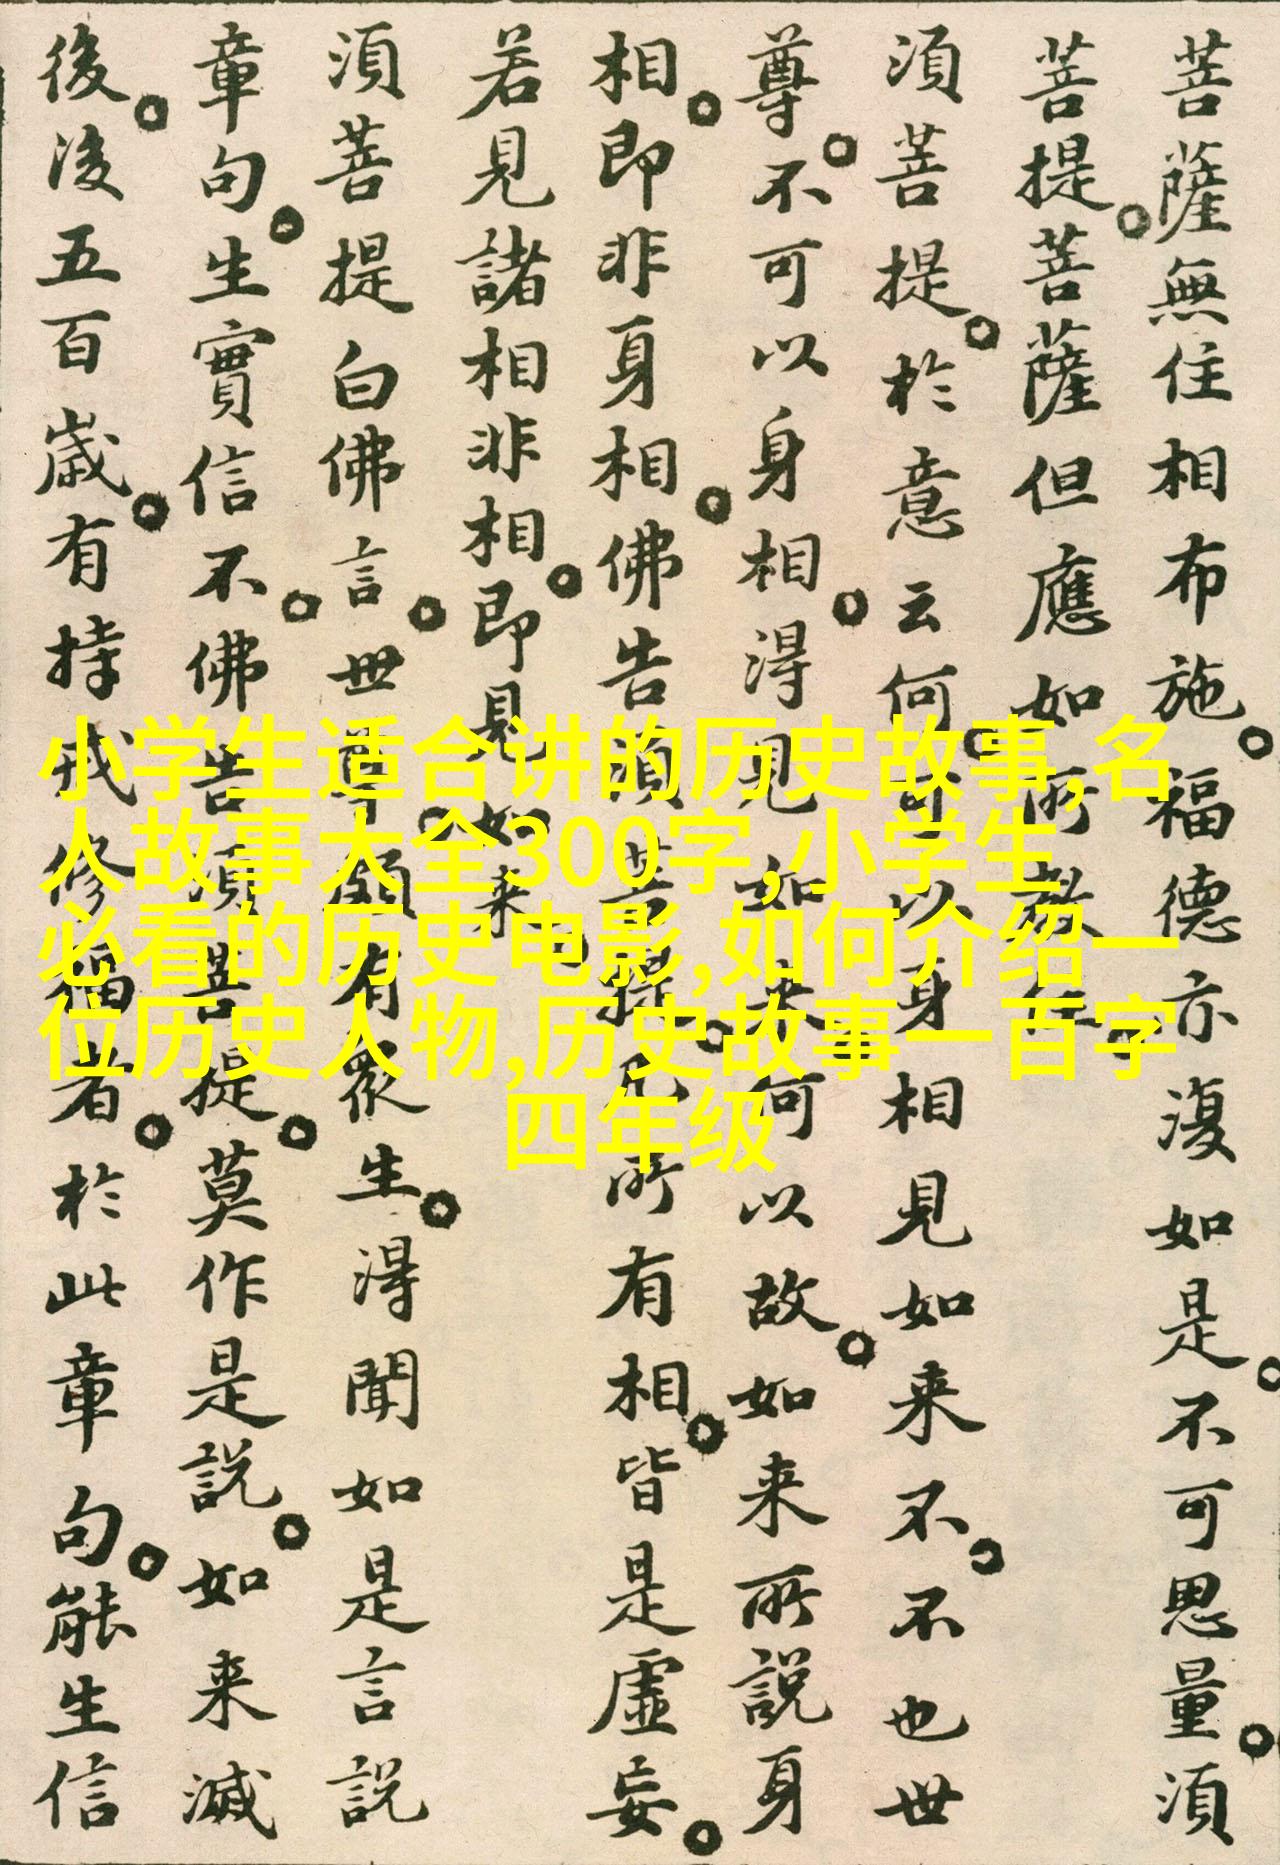 菩薩無住相布施。福德亦復如是。不可思量。須
菩提。菩薩但應如所教住。
須菩提。於意云何。可以身相見如来不。不也世
尊。不可以身相。得見如来何以故。如来所說身
相。即非身相。佛告須菩提。凡所有相。皆是虛妄。
若見諸相非相。即見如来。
須菩提白佛言。世尊。頗有眾生。得聞如是言說
章句。生實信不。佛告須菩提。莫作是說。如来滅
後。後五百歲。有持戒修福者。於此章句。能生信
小学生适合讲的历史故事,名
人故事大全300字,小学生
必看的历史电影,如何介绍一
位历史人物,历史故事一百字
四年级